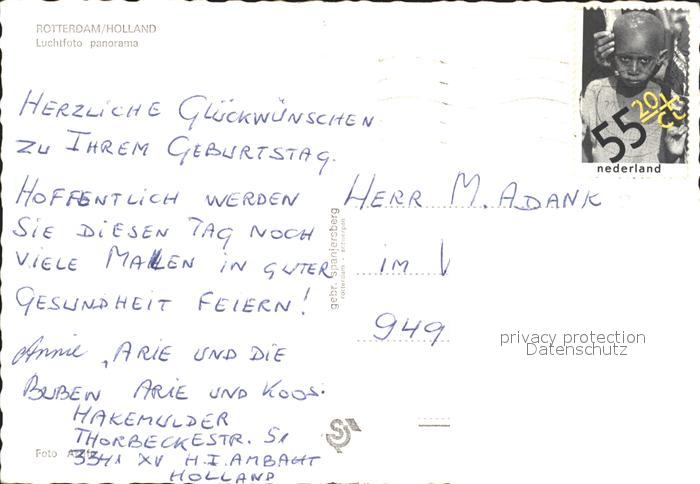 ROTTERDAM/HOLLAND
Luchtfoto panorama
55
20ct
nederland
HERZLICHE GLÜCKWÜNSCHEN
ZU IHREM GEBURTSTAG.
HOFFENTLICH WERDEN
SIE DIESEN TAG NOCH
VIELE MALEN IN GUTER
GESUNDHEIT FEIERN!
Annie, ARIE UND DIE
BUBEN ARIE UND KOOS.
HAKEMULDER
THORBECKESTR. 51
3341 XV H.I. AMBACHT
HOLLAND
Foto
gebr. spanjersberg
rotterdam - antwerpen
HERR M. ADANK
IM
949
privacy protection
Datenschutz